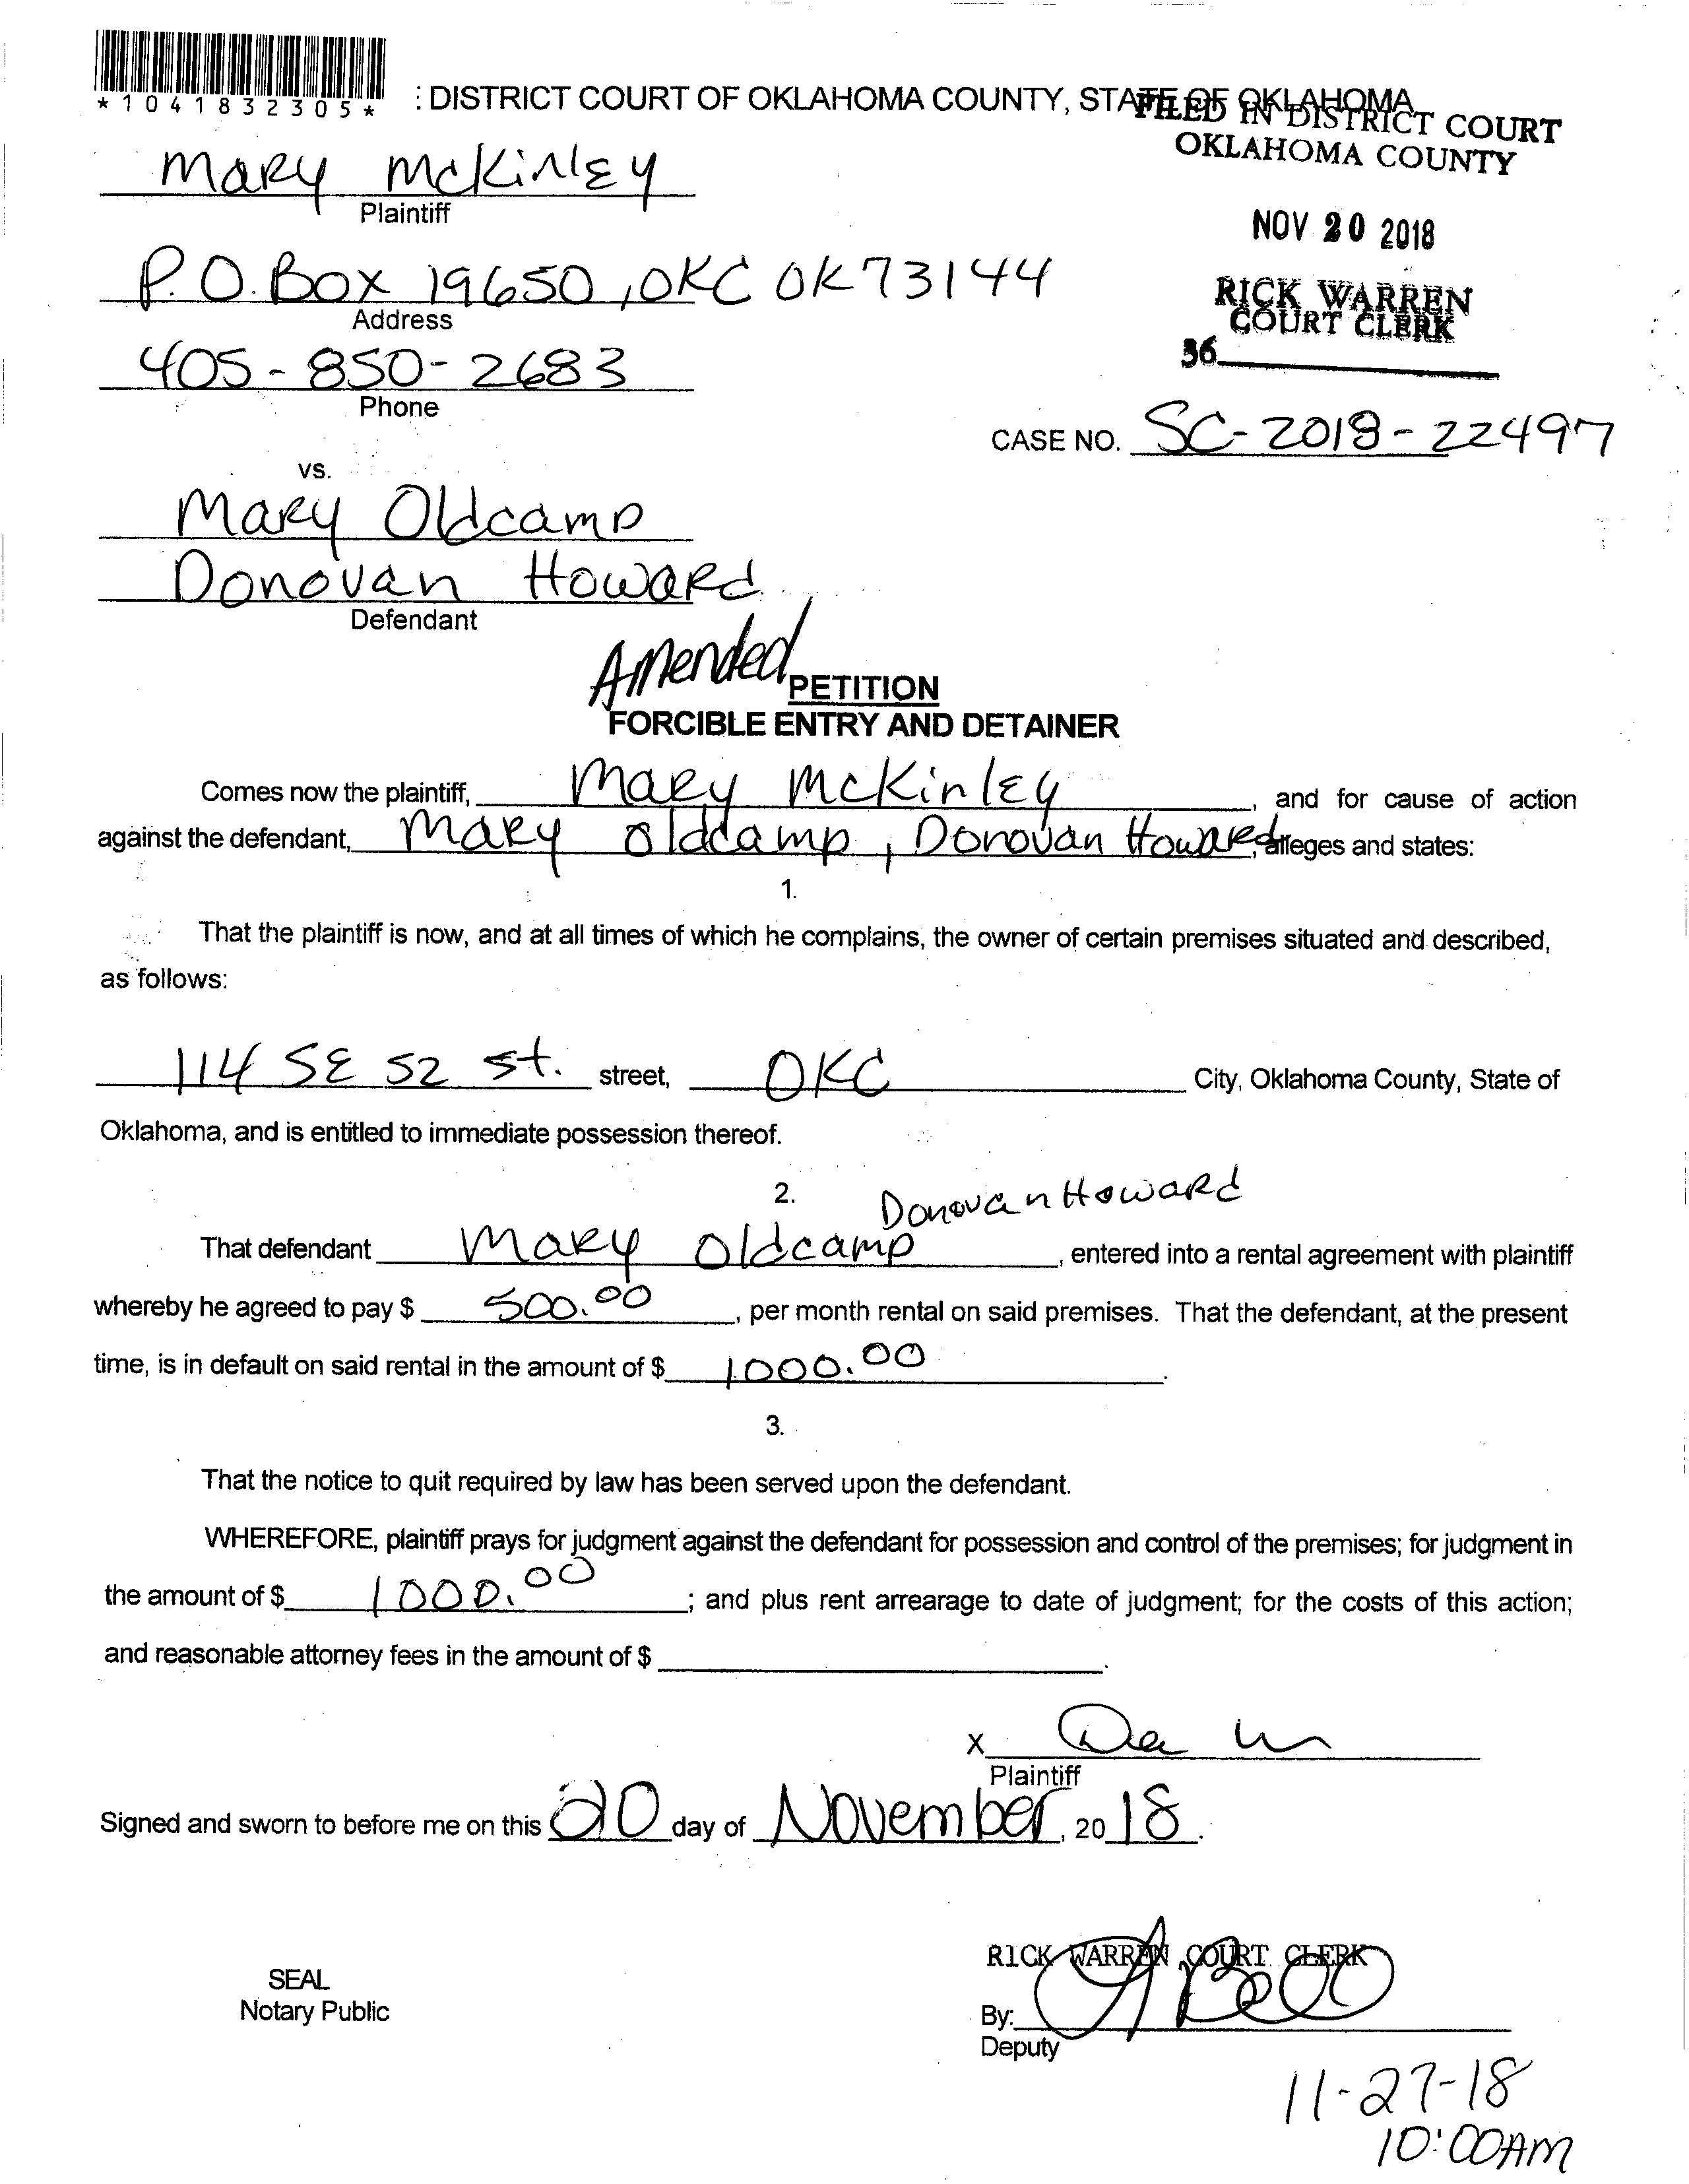 *1041832305*
: DISTRICT COURT OF OKLAHOMA COUNTY, STATE OF OKLAHOMA
FILED IN DISTRICT COURT
OKLAHOMA COUNTY
Mary McKinley
Plaintiff
NOV 20 2018
P.O. Box 19650, OKC OK 73144
Address
RICK WARREN
COURT CLERK
405-850-2683
Phone
36
CASE NO. SC-2018-22497
vs.
Mary Oldcamp
Donovan Howard
Defendant
Amended PETITION
FORCIBLE ENTRY AND DETAINER
Comes now the plaintiff, Mary McKinley, and for cause of action
against the defendant, Mary Oldcamp, Donovan Howard, alleges and states:
1.
That the plaintiff is now, and at all times of which he complains, the owner of certain premises situated and described,
as follows:
114 SE 52 St. street, OKC City, Oklahoma County, State of
Oklahoma, and is entitled to immediate possession thereof.
2.
Donovan Howard
That defendant Mary Oldcamp, entered into a rental agreement with plaintiff
whereby he agreed to pay $ 500.00, per month rental on said premises. That the defendant, at the present
time, is in default on said rental in the amount of $ 1000.00.
3.
That the notice to quit required by law has been served upon the defendant.
WHEREFORE, plaintiff prays for judgment against the defendant for possession and control of the premises; for judgment in
the amount of $ 1000.00; and plus rent arrearage to date of judgment; for the costs of this action;
and reasonable attorney fees in the amount of $ .
X
Plaintiff
Signed and sworn to before me on this 20 day of November, 2018.
RICK WARREN COURT CLERK
SEAL
Notary Public
By:
Deputy
11-27-18
10:00AM